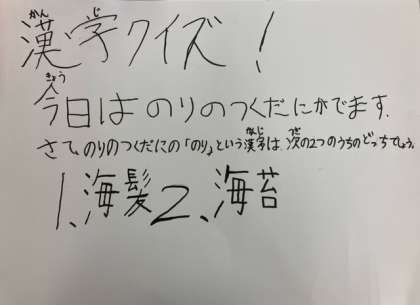 かん じ
漢学クイズ!
きょう
今日はのりのつくだにがでます.
かんじ つぎ
さて、のりのつくだにの「のり」という漢字は、次の2つのうちのどっちでしょう。
1、海髪 2、海苔